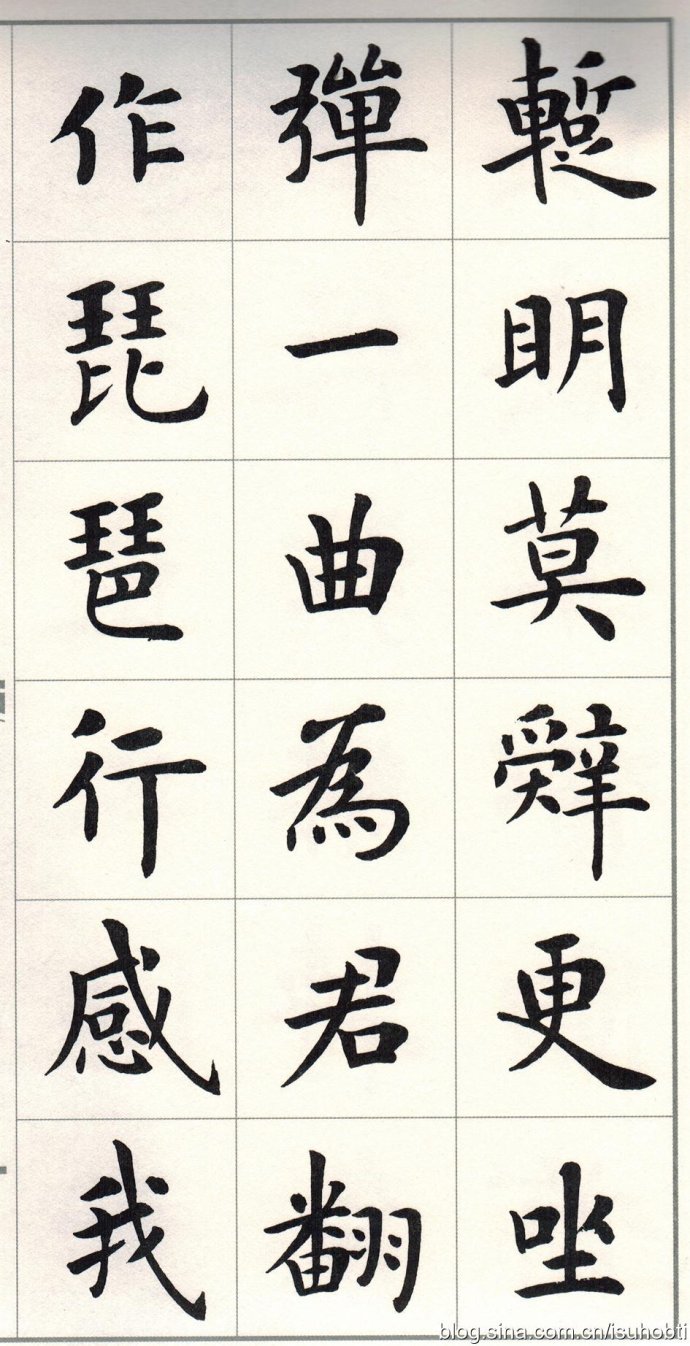 暫明莫辭更坐
彈一曲為君翻
作琵琶行感我
blog.sina.com.cn/isuhobti